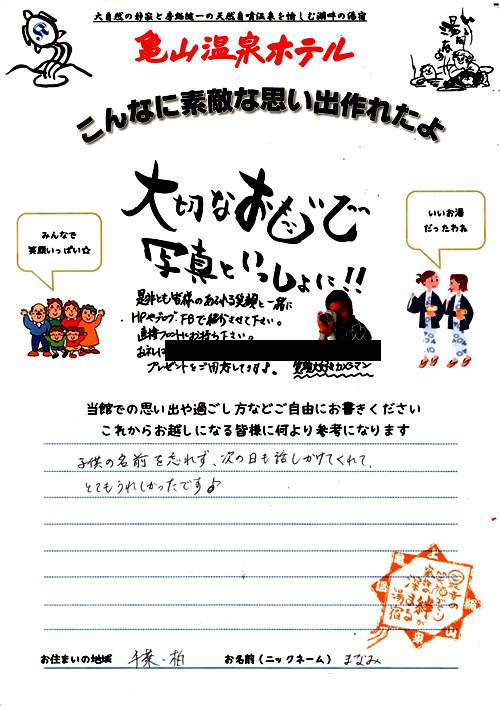 大自然の静寂と房総随一の天然自噴温泉を愉しむ湖畔の湯宿
亀山温泉ホテル
こんなに素敵な思い出作れたよ
大切なおもいで
写真といっしょに!!
みんなで
笑顔いっぱい☆
いいお湯
だったわね
是非とも皆様のあふれる笑顔と一緒に
HPやブログ、FBで紹介させて下さい。
直接フロントにお持ち下さい。
お礼に
プレゼントをご用意してます♪。
笑顔大好きカメラマン
当館での思い出や過ごし方などご自由にお書きください
これからお越しになる皆様に何より参考になります
子供の名前を忘れず、次の日も話しかけてくれて、
とてもうれしかったです♪
お住まいの地域 千葉・柏 お名前(ニックネーム) まなみ